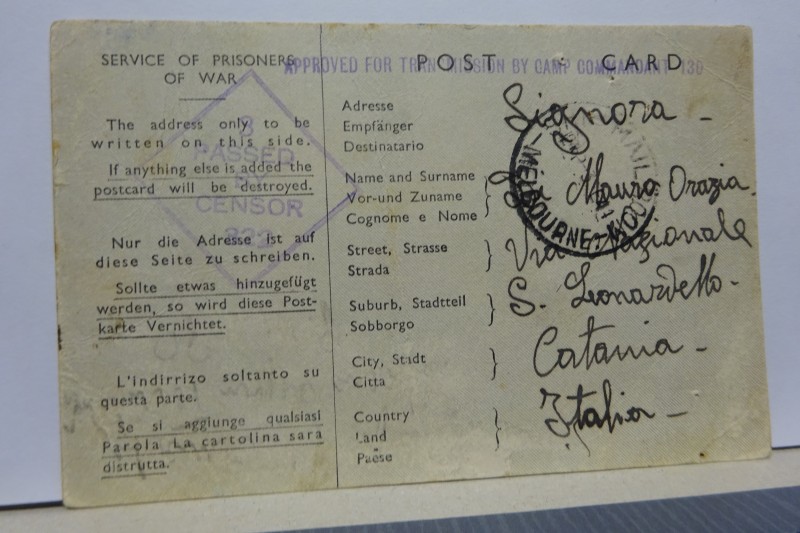 SERVICE OF PRISONERS
OF WAR
The address only to be
written on this side.
If anything else is added the
postcard will be destroyed.
Nur die Adresse ist auf
diese Seite zu schreiben.
Sollte etwas hinzugefügt
werden, so wird diese Post-
karte Vernichtet.
L'indirrizo soltanto su
questa parte.
Se si aggiunge qualsiasi
Parola La cartolina sara
distrutta.
3
PASSED
BY
CENSOR
POST CARD
APPROVED FOR TRANSMISSION BY CAMP COMMANDANT 130
Adresse
Empfänger
Destinatario
Name and Surname
Vor-und Zuname
Cognome e Nome
Street, Strasse
Strada
Suburb, Stadtteil
Sobborgo
City, Stadt
Citta
Country
Land
Paese
Signora -
Mauro Orazia
Via Nazionale
S. Leonardello -
Catania -
Italia -
MELBOURNE